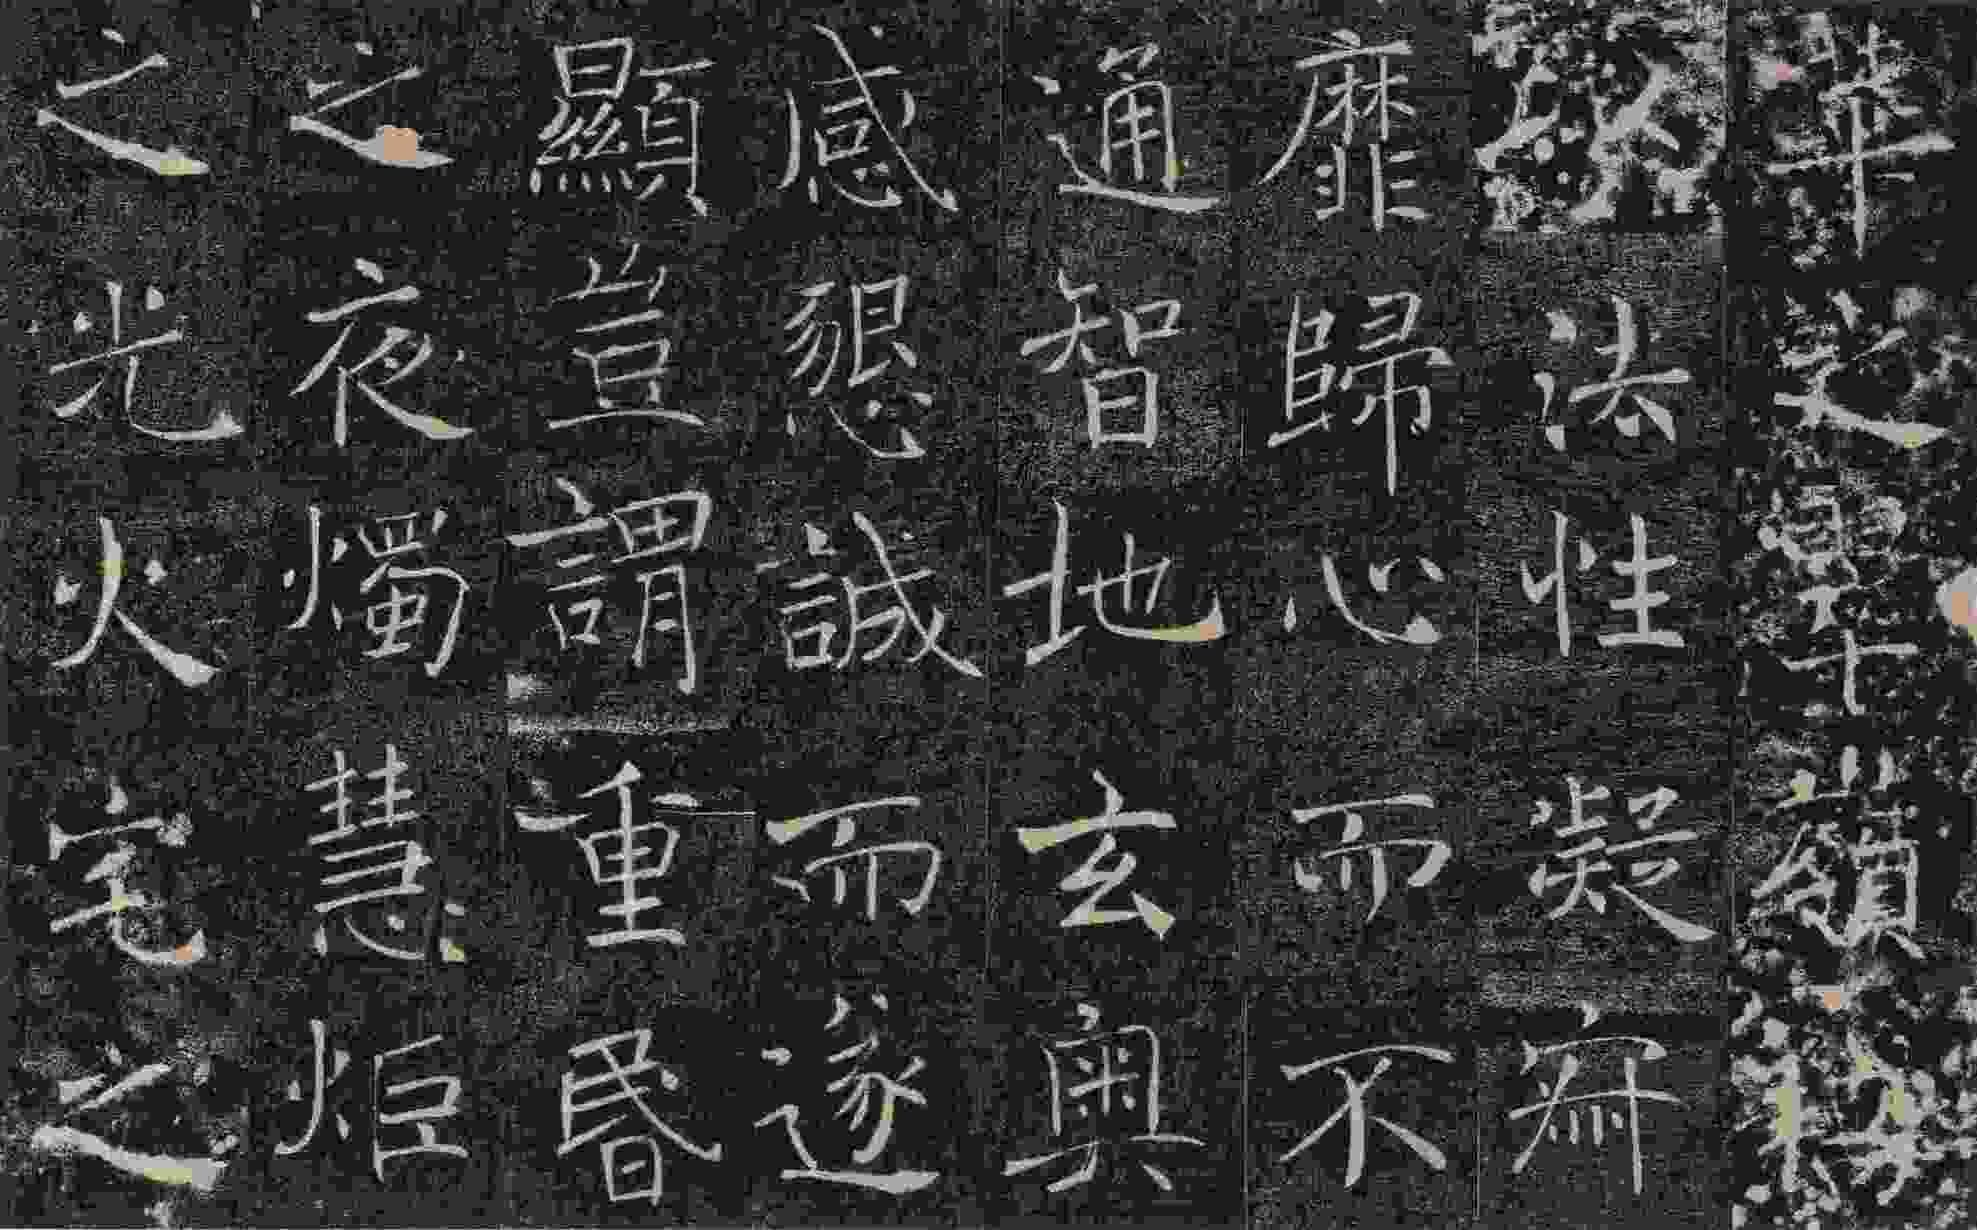 華之翠嶺
法性凝寂
靡歸心而不
通智地玄奧
感懇誠而遂
顯豈謂重昏
之夜燭慧炬
之光火宅之